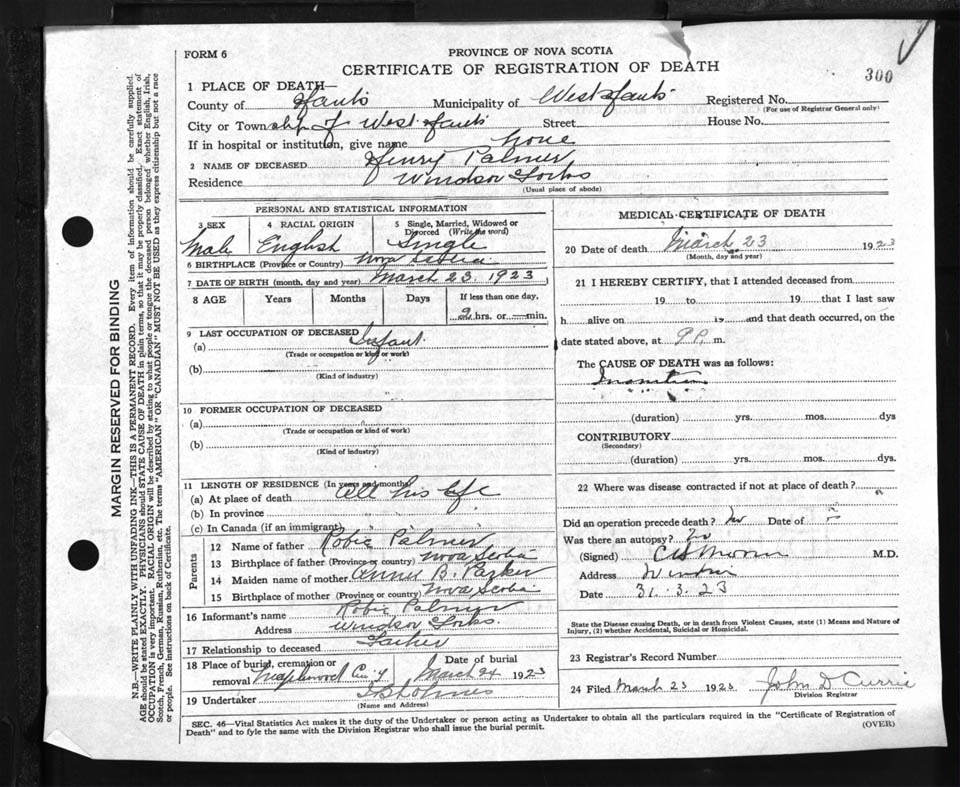 FORM 6
PROVINCE OF NOVA SCOTIA
CERTIFICATE OF REGISTRATION OF DEATH
300
1 PLACE OF DEATH—
County of Hants Municipality of West Hants Registered No.
(For use of Registrar General only)
City or Township of West Hants Street House No.
If in hospital or institution, give name None
2 NAME OF DECEASED Henry Palmer
Residence Windsor Forks
(Usual place of abode)
PERSONAL AND STATISTICAL INFORMATION
3 SEX 4 RACIAL ORIGIN 5 Single, Married, Widowed or Divorced (Write the word)
Male English Single
6 BIRTHPLACE (Province or Country) Nova Scotia
7 DATE OF BIRTH (month, day and year) March 23. 1923
8 AGE Years Months Days If less than one day,
2 hrs. or min.
9 LAST OCCUPATION OF DECEASED
(a) Infant
(Trade or occupation or kind of work)
(b)
(Kind of industry)
10 FORMER OCCUPATION OF DECEASED
(a)
(Trade or occupation or kind of work)
(b)
(Kind of industry)
11 LENGTH OF RESIDENCE (In years and months)
(a) At place of death All his life
(b) In province
(c) In Canada (if an immigrant)
Parents
12 Name of father Robie Palmer
13 Birthplace of father (Province or country) Nova Scotia
14 Maiden name of mother Annie B. Parker
15 Birthplace of mother (Province or country) Nova Scotia
16 Informant's name Robie Palmer
Address Windsor Forks.
17 Relationship to deceased Father
18 Place of burial, cremation or removal Maplewood Date of burial March 24 1923
19 Undertaker
(Name and Address)
MEDICAL CERTIFICATE OF DEATH
20 Date of death March 23 1923
(Month, day and year)
21 I HEREBY CERTIFY, that I attended deceased from
19 to 19 that I last saw
h alive on 19 and that death occurred, on the
date stated above, at 9 P. m.
The CAUSE OF DEATH was as follows:
Inanition
(duration) yrs. mos. dys
CONTRIBUTORY
(Secondary)
(duration) yrs. mos. dys.
22 Where was disease contracted if not at place of death?
Did an operation precede death? No Date of
Was there an autopsy? No
(Signed) M.D.
Address Windsor
Date 31.3.23
State the Disease causing Death, or in death from Violent Causes, state (1) Means and Nature of
Injury, (2) whether Accidental, Suicidal or Homicidal.
23 Registrar's Record Number
24 Filed March 23 1923 John D Currie
Division Registrar
SEC. 46—Vital Statistics Act makes it the duty of the Undertaker or person acting as Undertaker to obtain all the particulars required in the "Certificate of Registration of
Death" and to fyle the same with the Division Registrar who shall issue the burial permit. (OVER)
MARGIN RESERVED FOR BINDING
N.B.—WRITE PLAINLY WITH UNFADING INK—THIS IS A PERMANENT RECORD. Every item of information should be carefully supplied.
AGE should be stated EXACTLY. PHYSICIANS should STATE CAUSE OF DEATH in plain terms, so that it may be properly classified. Exact statement of
OCCUPATION is very important. RACIAL ORIGIN will be described by stating to what people or tongue the deceased person belonged, whether English, Irish,
Scotch, French, German, Russian, Ruthenian, etc. The terms "AMERICAN" OR "CANADIAN" MUST NOT BE USED as they express citizenship but not a race
or people. See instructions on back of Certificate.